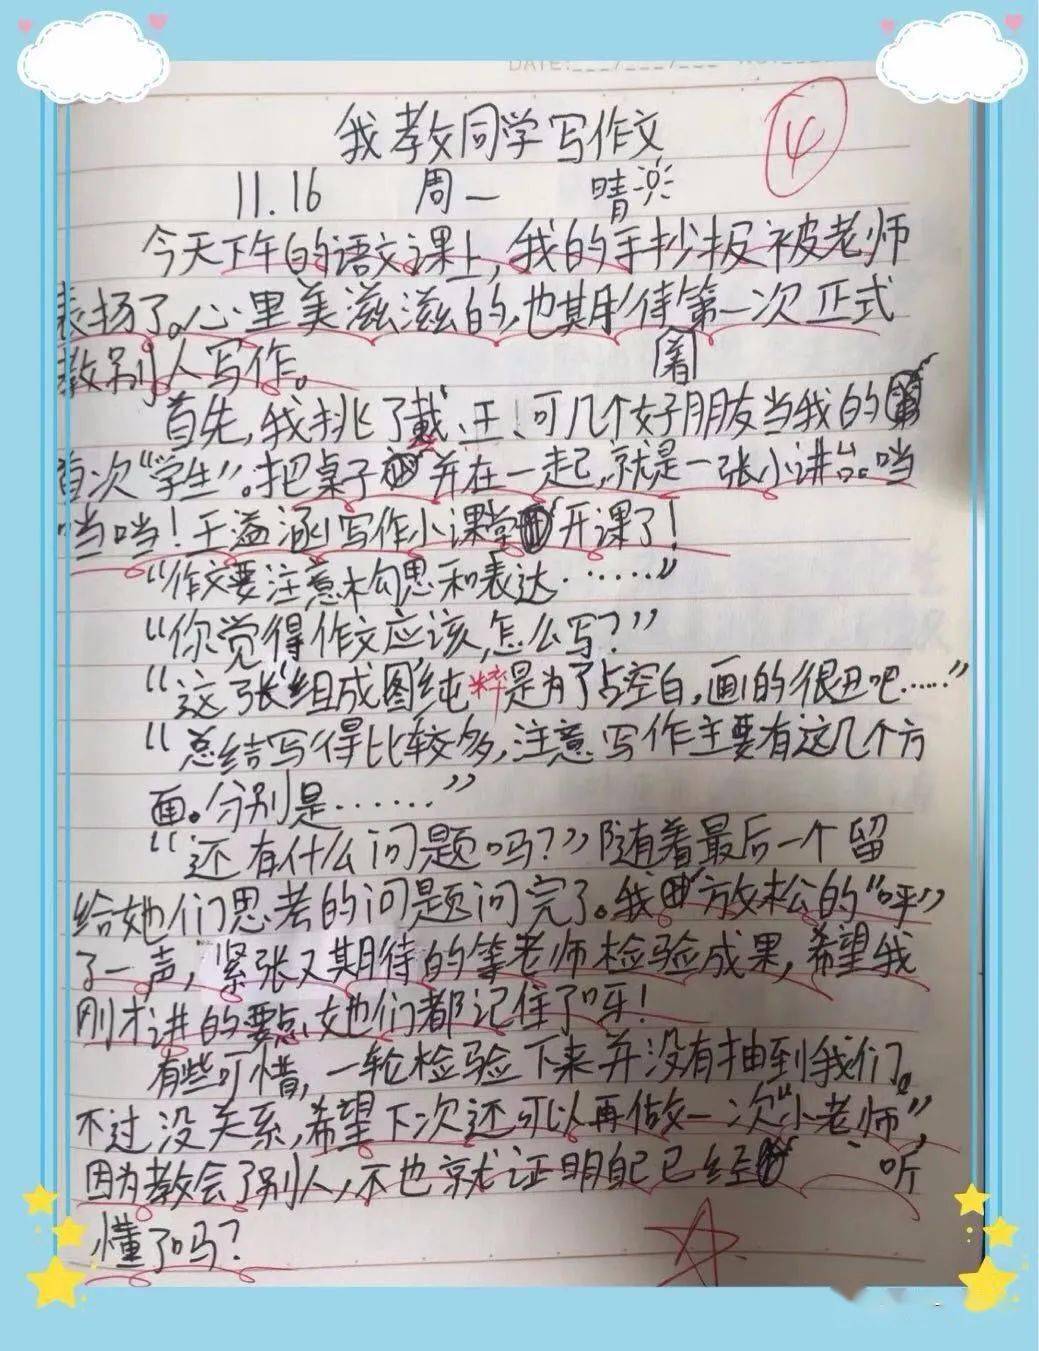 DATE:___/___/___ NO.
我教同学写作文
④
11.16 周一 晴
今天下午的语文课上,我的手抄报被老师
表扬了。心里美滋滋的,也期待第一次正式
教别人写作。
着
首先,我挑了戴、王、可几个好朋友当我的
首次“学生”。把桌子并在一起,就是一张小讲台。当
当当!王溢涵写作小课堂开课了!
“作文要注意构思和表达……”
“你觉得作文应该怎么写?”
“这张“组成图”纯粹是为了占空白,画的很丑吧……”
“总结写得比较多,注意写作主要有这几个方
面。分别是……”
“还有什么问题吗?”随着最后一个留
给她们思考的问题问完了。我放松的“呼”
了一声,紧张又期待的等老师检验成果,希望我
刚才讲的要点她们都记住了呀!
有些可惜,一轮检验下来并没有抽到我们。
不过没关系,希望下次还可以再做一次“小老师”,
因为教会了别人,不也就证明自己已经 听
懂了吗?